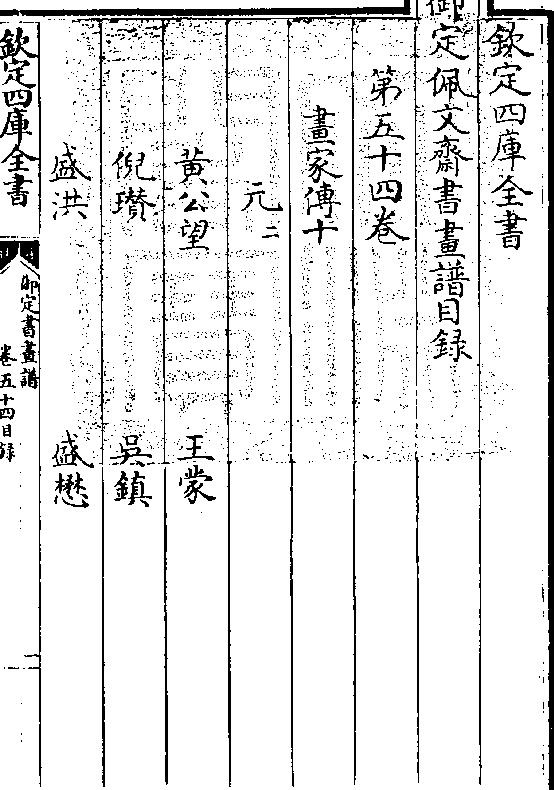 欽定四庫全書
御定佩文齋書畫譜目録
第五十四卷
畫家傳十
元二
黄公望 王蒙
倪瓚 吳鎮
盛洪 盛懋
欽定四庫全書
御定書畫譜
卷五十四目録
一